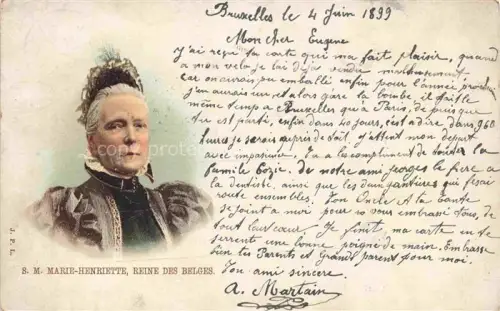 Bruxelles le 4 Juin 1899
Mon cher Eugene
j'ai reçu ta carte qui ma fait plaisir, quand
a mon velo je lai deja vendu
car on aurais pu emballé enfin pour l'année
j'en aurais un et alors gare la bombe il fait le
même temp a Bruxelles qu'a Paris, depuis que
tu est parti, enfin dans 40 jours, c'est a dire dans 960
heures je serais auprès de toi. j'attent mon depart
avec impatience. Tu a les compliment de toute la
famille de notre ami Georges le frere a
la dentiste, ainsi que les deux qui ferai
route ensembles. Ton Oncle et Ta tante
se joint a moi pour vous embrasé Tous, de
tout leur cœur. Je finit, ma carte en te
serrent une bonne poigne de main, Embrasse
bien les Parents et Grands parent pour moi.
Ton ami sincere.
A. Martain
J. P. L.
S. M. MARIE-HENRIETTE, REINE DES BELGES.